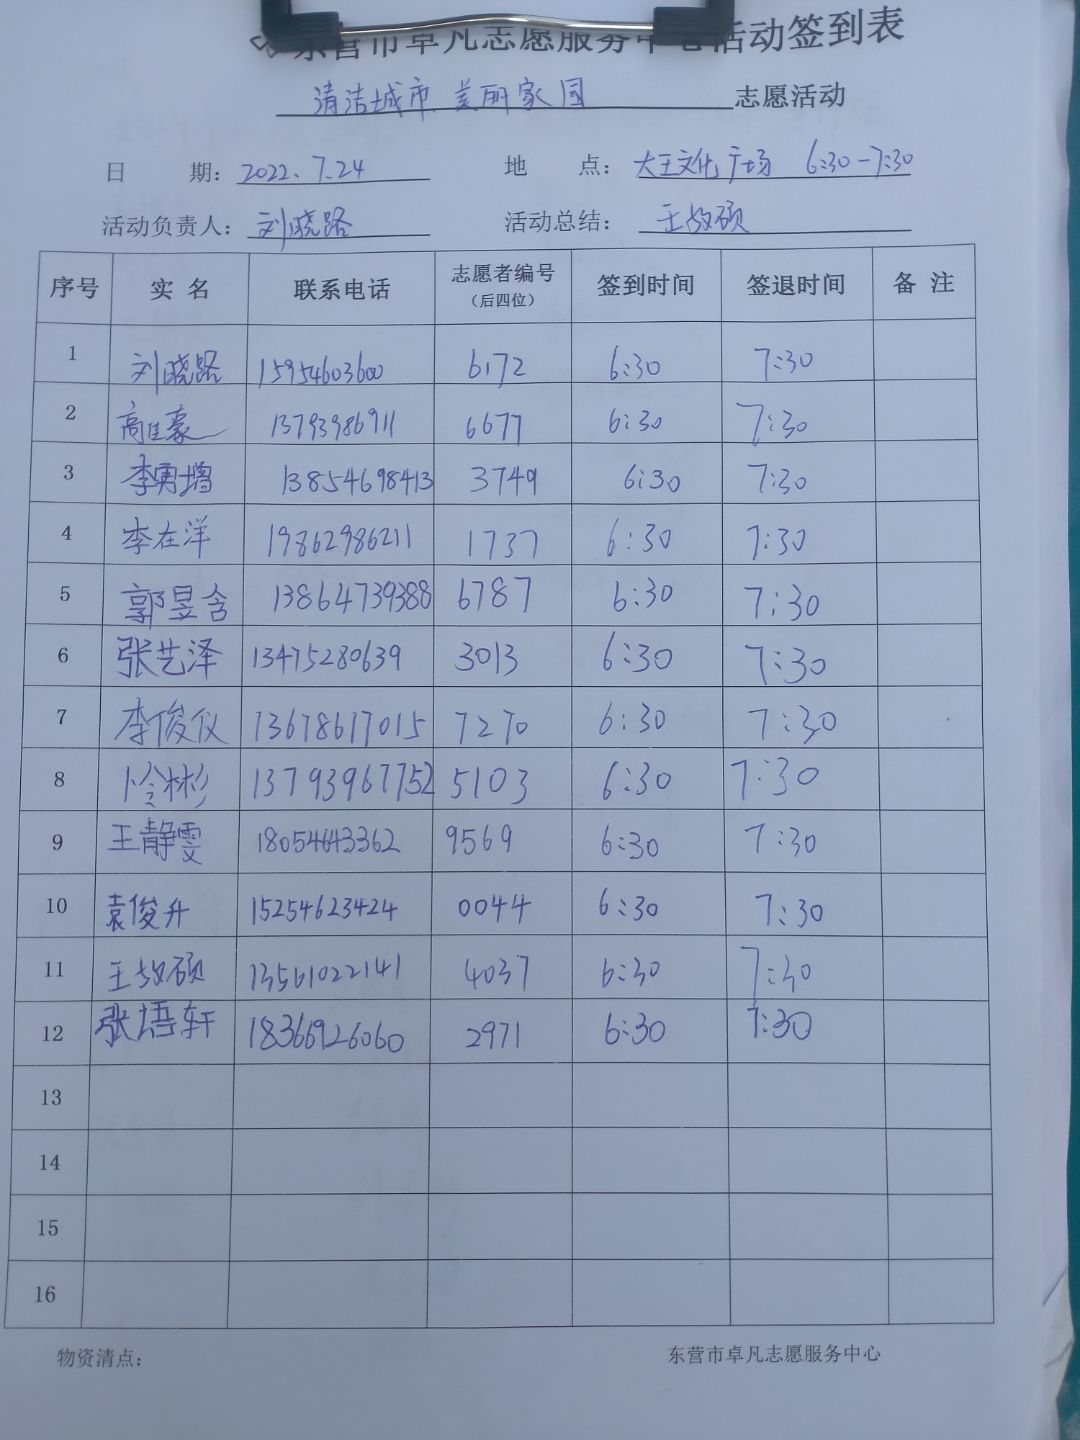 东营市卓凡志愿服务中心活动签到表
清洁城市 美丽家园 志愿活动
日 期： 2022.7.24 地 点： 大王文化广场 6:30-7:30
活动负责人： 刘晓路 活动总结： 王故硕
序号 实 名 联系电话 志愿者编号（后四位） 签到时间 签退时间 备 注
1 刘晓路 15954603600 6172 6:30 7:30
2 高匡豪 13793986911 6677 6:30 7:30
3 李勇增 13854698413 3749 6:30 7:30
4 李在洋 19862986211 1737 6:30 7:30
5 郭昱含 13864739388 6787 6:30 7:30
6 张艺泽 13475280639 3013 6:30 7:30
7 李俊仪 13678617015 7270 6:30 7:30
8 13793967752 5103 6:30 7:30
9 王静雯 18054643362 9569 6:30 7:30
10 袁俊升 15254623424 0044 6:30 7:30
11 王故硕 13561022141 4037 6:30 7:30
12 张语轩 18366926060 2971 6:30 7:30
13
14
15
16
物资清点： 东营市卓凡志愿服务中心